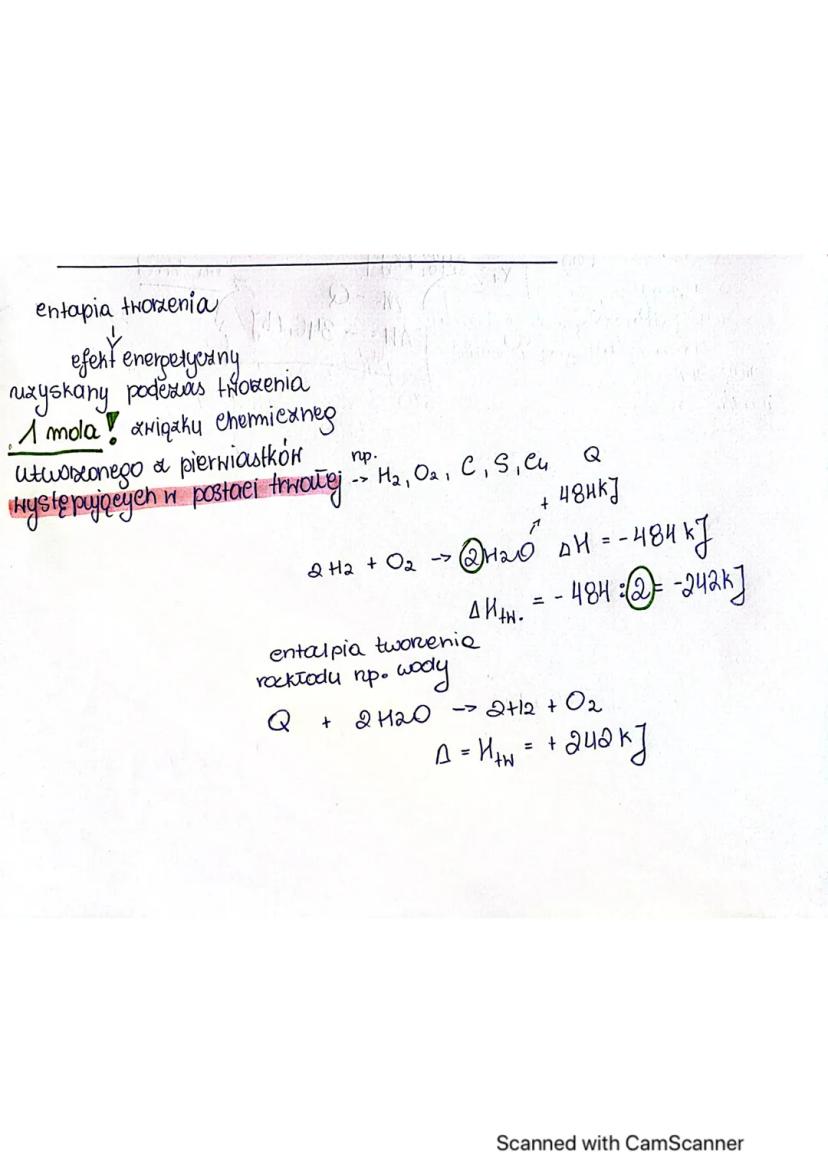 entapia tworzenia
↓
efekt energetyczny
uzyskany podczas tworzenia
1 mola! związku chemiczneg
utworzonego z pierwiastków
występujących w postaci trwałej → np. H2, O2, C, S, Cu Q
+ 484kJ
2H2 + O2 → 2H2O ΔH = -484 kJ
ΔHtw. = - 484 : 2 = -242kJ
entalpia tworzenia
rozkładu np. wody
Q + 2H2O → 2H2 + O2
Δ = Htw = + 242 kJ
Scanned with CamScanner